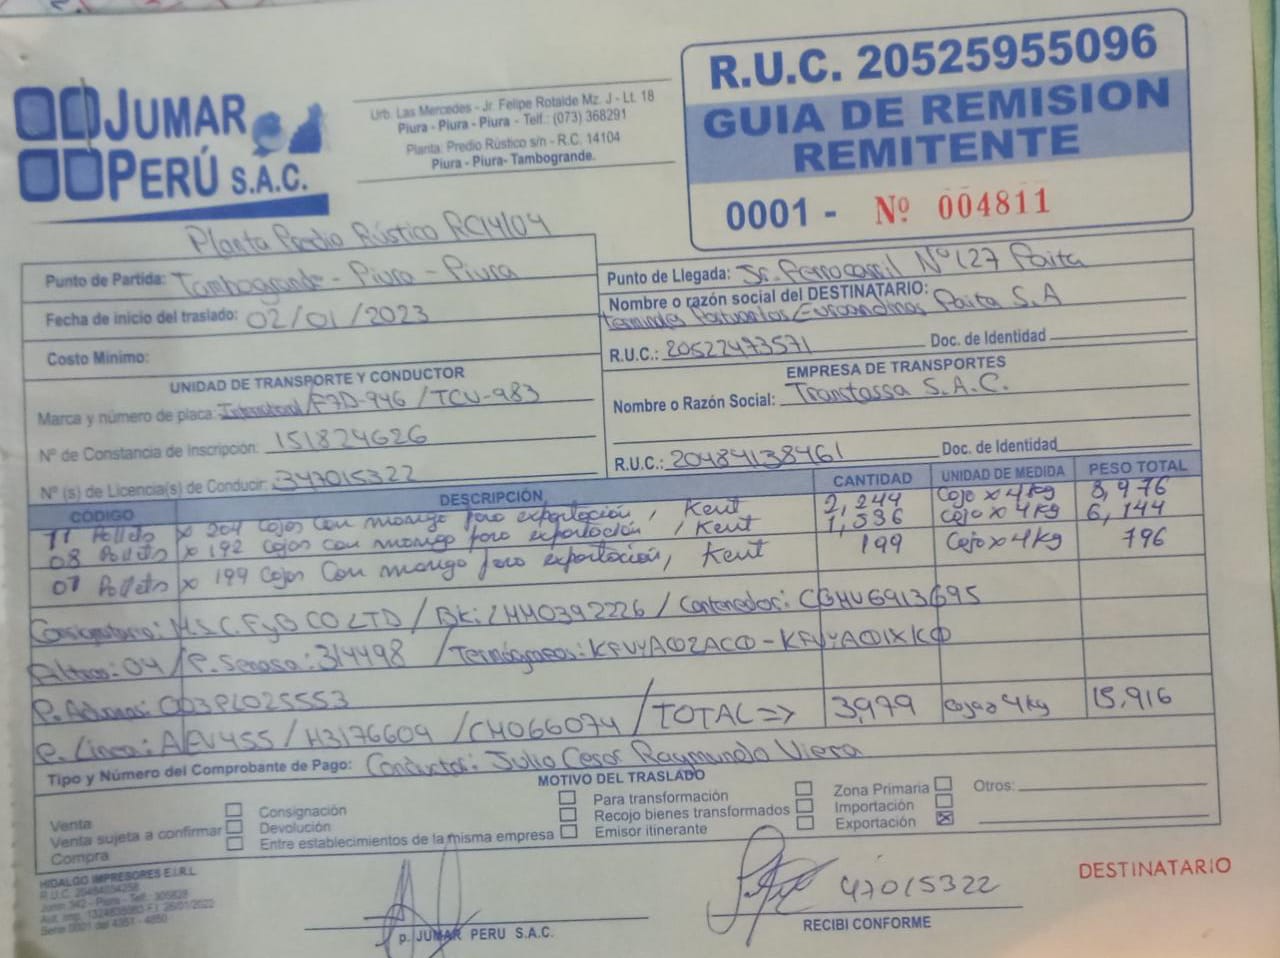 JUMAR
PERÚ S.A.C.
Urb. Las Mercedes - Jr. Felipe Rotalde Mz. J - Lt. 18
Piura - Piura - Piura - Telf.: (073) 368291
Planta: Predio Rústico s/n - R.C. 14104
Piura - Piura- Tambogrande.
R.U.C. 20525955096
GUIA DE REMISION
REMITENTE
0001 - Nº 004811
Planta Predio Rústico RC14104
Punto de Partida: Tambogrande - Piura - Piura
Fecha de inicio del traslado: 02/01/2023
Costo Mínimo:
Punto de Llegada: Jr. Ferrocarril Nº 127 Paita
Nombre o razón social del DESTINATARIO:
Terminales Portuarios Euroandinos Paita S.A
R.U.C.: 20522473571 Doc. de Identidad
UNIDAD DE TRANSPORTE Y CONDUCTOR
Marca y número de placa: International/F7D-946/TCU-983
Nº de Constancia de Inscripción: 151824626
Nº (s) de Licencia(s) de Conducir: 347015322
EMPRESA DE TRANSPORTES
Nombre o Razón Social: Transtassa S.A.C.
R.U.C.: 20484138461 Doc. de Identidad
CÓDIGO DESCRIPCIÓN CANTIDAD UNIDAD DE MEDIDA PESO TOTAL
11 Pallets x 204 Cajas con mango para exportación, Kent 2,244 Caja x 4kg 8,976
08 Pallets x 192 Cajas con mango para exportación, Kent 1,536 Caja x 4kg 6,144
01 Pallets x 199 Cajas Con mango para exportación, Kent 199 Caja x 4kg 796
Consignatario: H.S.C. FyB CO LTD / Bk: LMM0392226 / Contenedor: CGMU6913695
Filtros: 04 / P. Senasa: 314498 / Termógrafos: KFVYA02AC0 - KFVYA01XK0
P. Aduana: 003PL025553
P. Línea: AEV455 / H3176609 / CM066074 / TOTAL => 3,979 Cajas 4kg 15,916
Tipo y Número del Comprobante de Pago: Conductor: Julio Cesar Raymundo Viera
MOTIVO DEL TRASLADO
Venta
Venta sujeta a confirmar
Compra
Consignación
Devolución
Entre establecimientos de la misma empresa
Para transformación
Recojo bienes transformados
Emisor itinerante
Zona Primaria
Importación
Exportación
Otros:
HIDALGO IMPRESORES E.I.R.L.
Serie 0001 del 4351 - 4850
p. JUMAR PERU S.A.C.
47015322
RECIBI CONFORME
DESTINATARIO